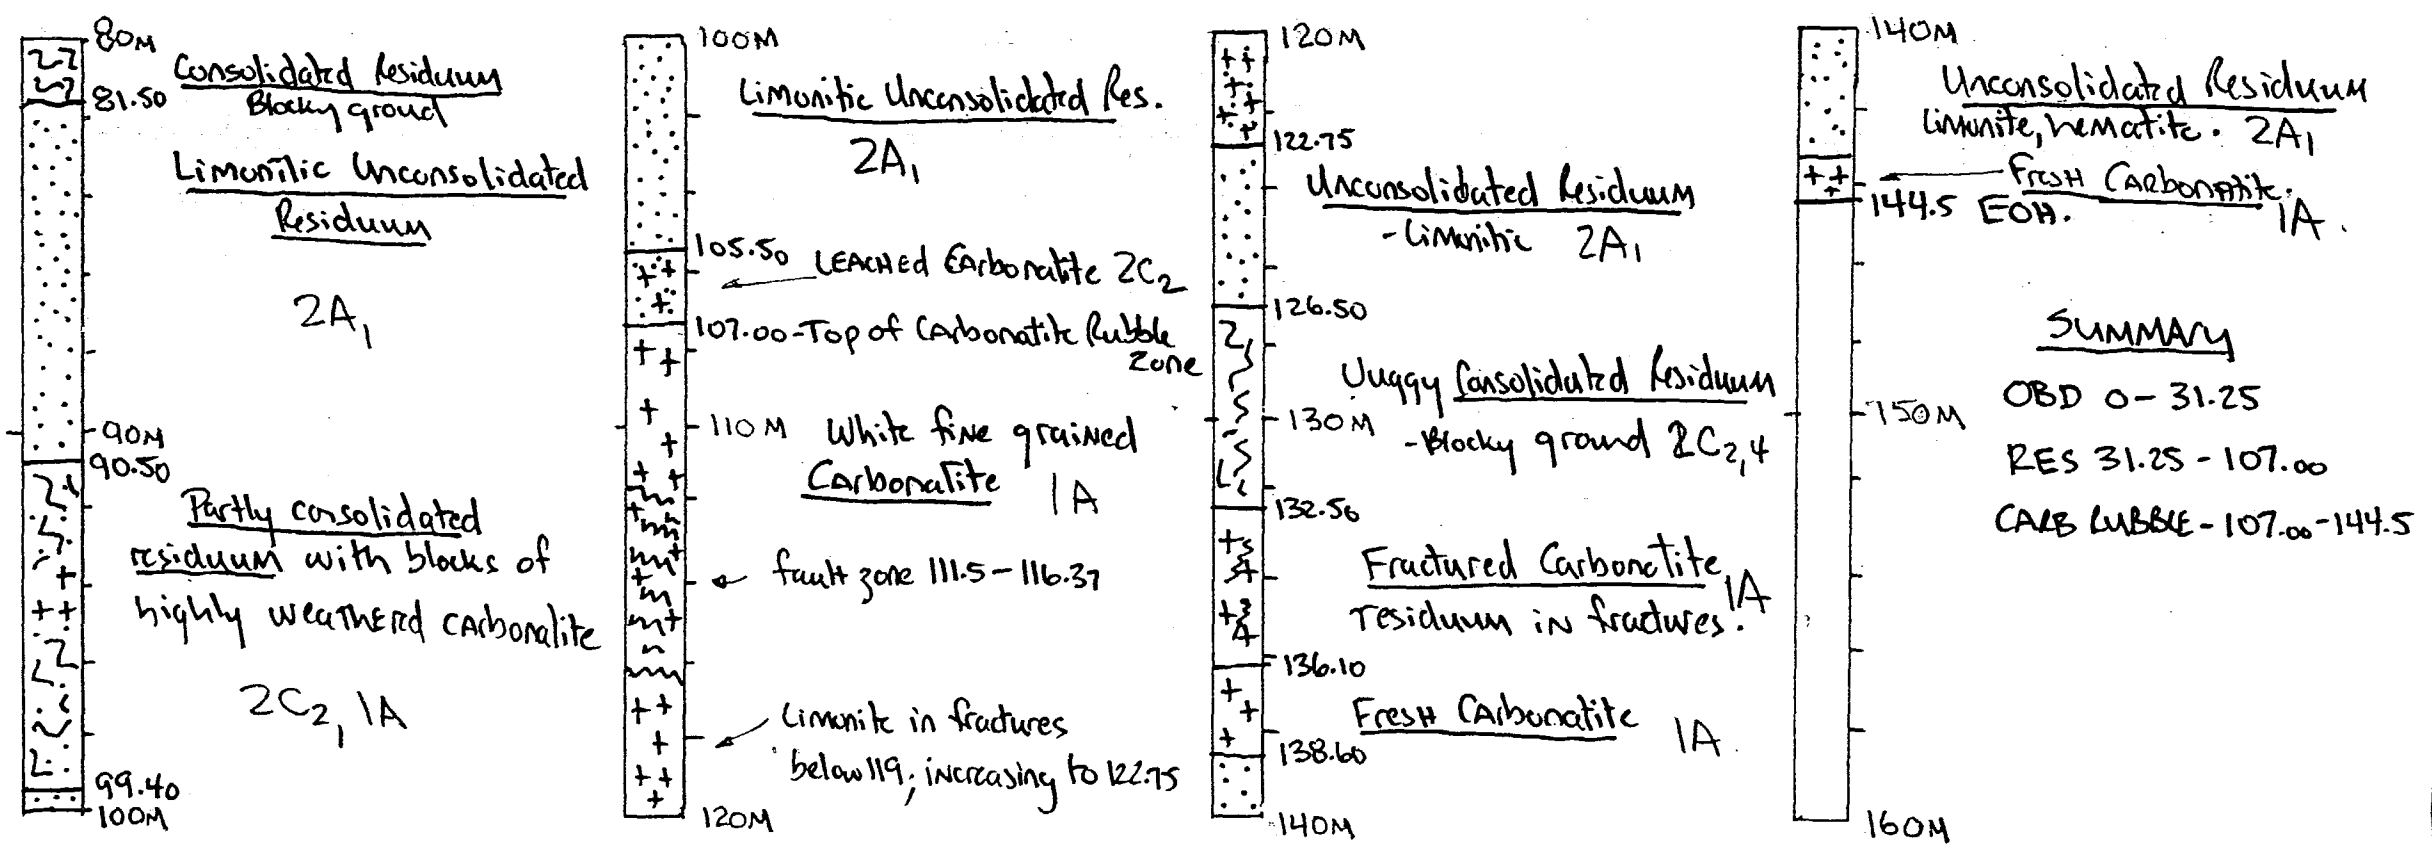 80M
Consolidated Residuum
81.50
Blocky ground
Limonitic Unconsolidated
Residuum
2A1
90M
90.50
Partly consolidated
residuum with blocks of
highly weatherd carbonatite
2C2, 1A
99.40
100M
100M
Limonitic Unconsolidated Res.
2A1
105.50 LEACHED CArbonatite 2C2
107.00-Top of CArbonatite Rubble
Zone
110M White fine grained
Carbonatite 1A
fault zone 111.5-116.37
Limonite in fractures
below 119, increasing to 122.75
120M
120M
122.75
Unconsolidated Residuum
-Limonitic 2A1
126.50
Vuggy Consolidated Residuum
130M
-Blocky ground 2C2,4
132.50
Fractured Carbonatite 1A
residuum in fractures.
136.10
Fresh CArbonatite 1A
138.60
140M
140M
Unconsolidated Residuum
Limonite, hematite. 2A1
Fresh CArbonatite. 1A.
144.5 EOH.
SUMMARY
OBD 0-31.25
150M
RES 31.25-107.00
CARB RUBBLE-107.00-144.5
160M